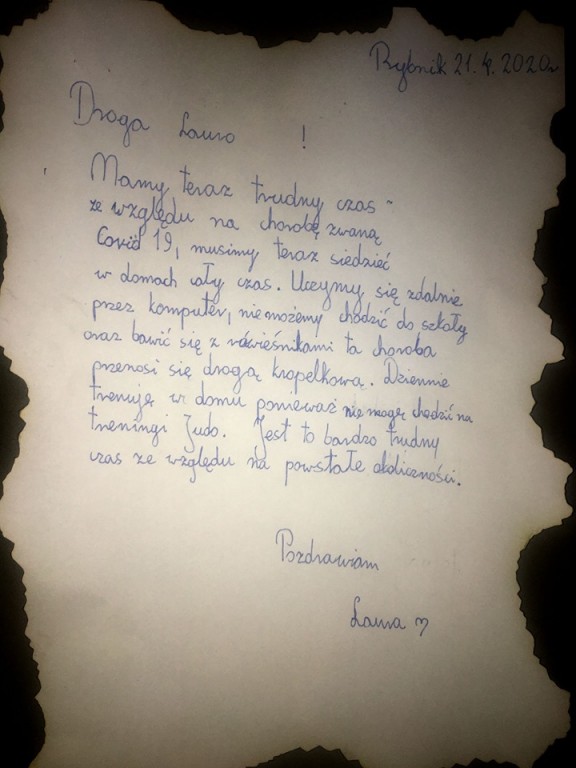 Rybnik 21.4.2020r
Droga Lauro !
Mamy teraz trudny czas -
ze względu na chorobę zwaną
Covid 19, musimy teraz siedzieć
w domach cały czas. Uczymy się zdalnie
przez komputer, niemożemy chodzić do szkoły
oraz bawić się z rówieśnikami ta choroba
przenosi się drogą kropelkową. Dziennie
trenuję w domu ponieważ nie mogę chodzić na
treningi Judo. Jest to bardzo trudny
czas ze względu na powstałe okoliczności.
Pozdrawiam
Laura ♡